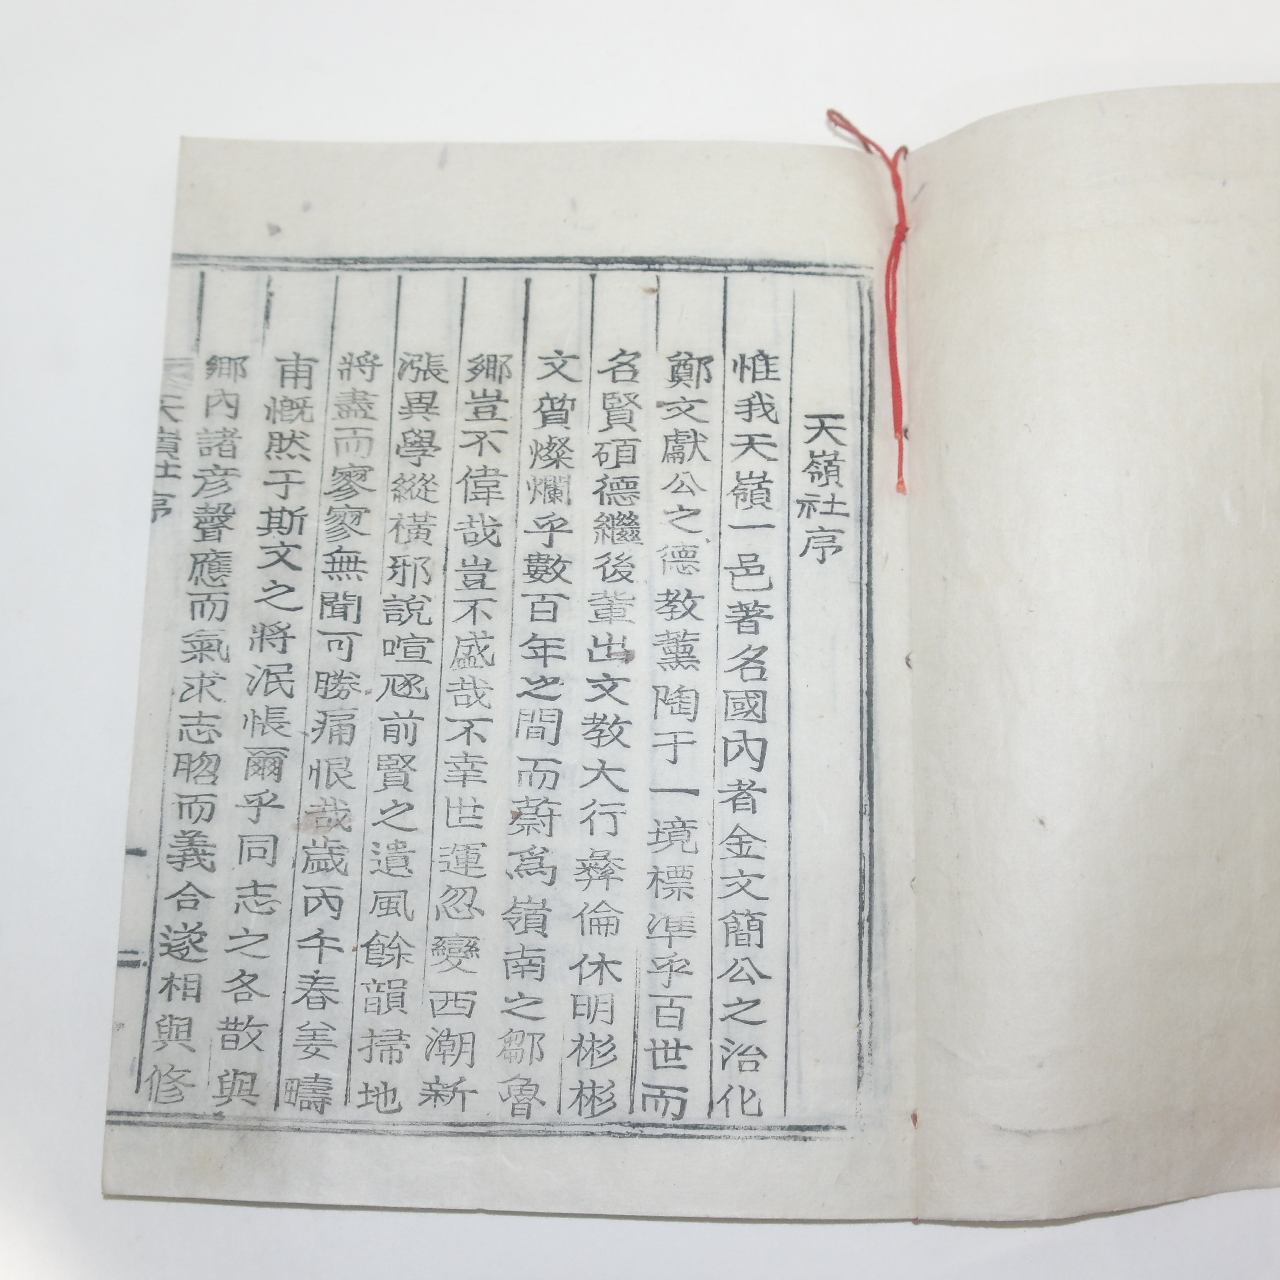 天嶺社序
惟我天嶺一邑著名國內者金文簡公之治化
鄭文獻公之德教薰陶于一境標準乎百世而
名賢碩德繼後輩出文教大行彛倫休明彬彬
文質燦爛乎數百年之間而蔚爲嶺南之鄒魯
鄉豈不偉哉豈不盛哉不幸世運忽變西潮新
漲異學縱橫邪說喧豗前賢之遺風餘韻掃地
將盡而寥寥無聞可勝痛恨哉歲丙午春姜疇
甫慨然于斯文之將泯悵爾乎同志之各散與
鄉內諸彦聲應而氣求志照而義合遂相與修
天嶺社序